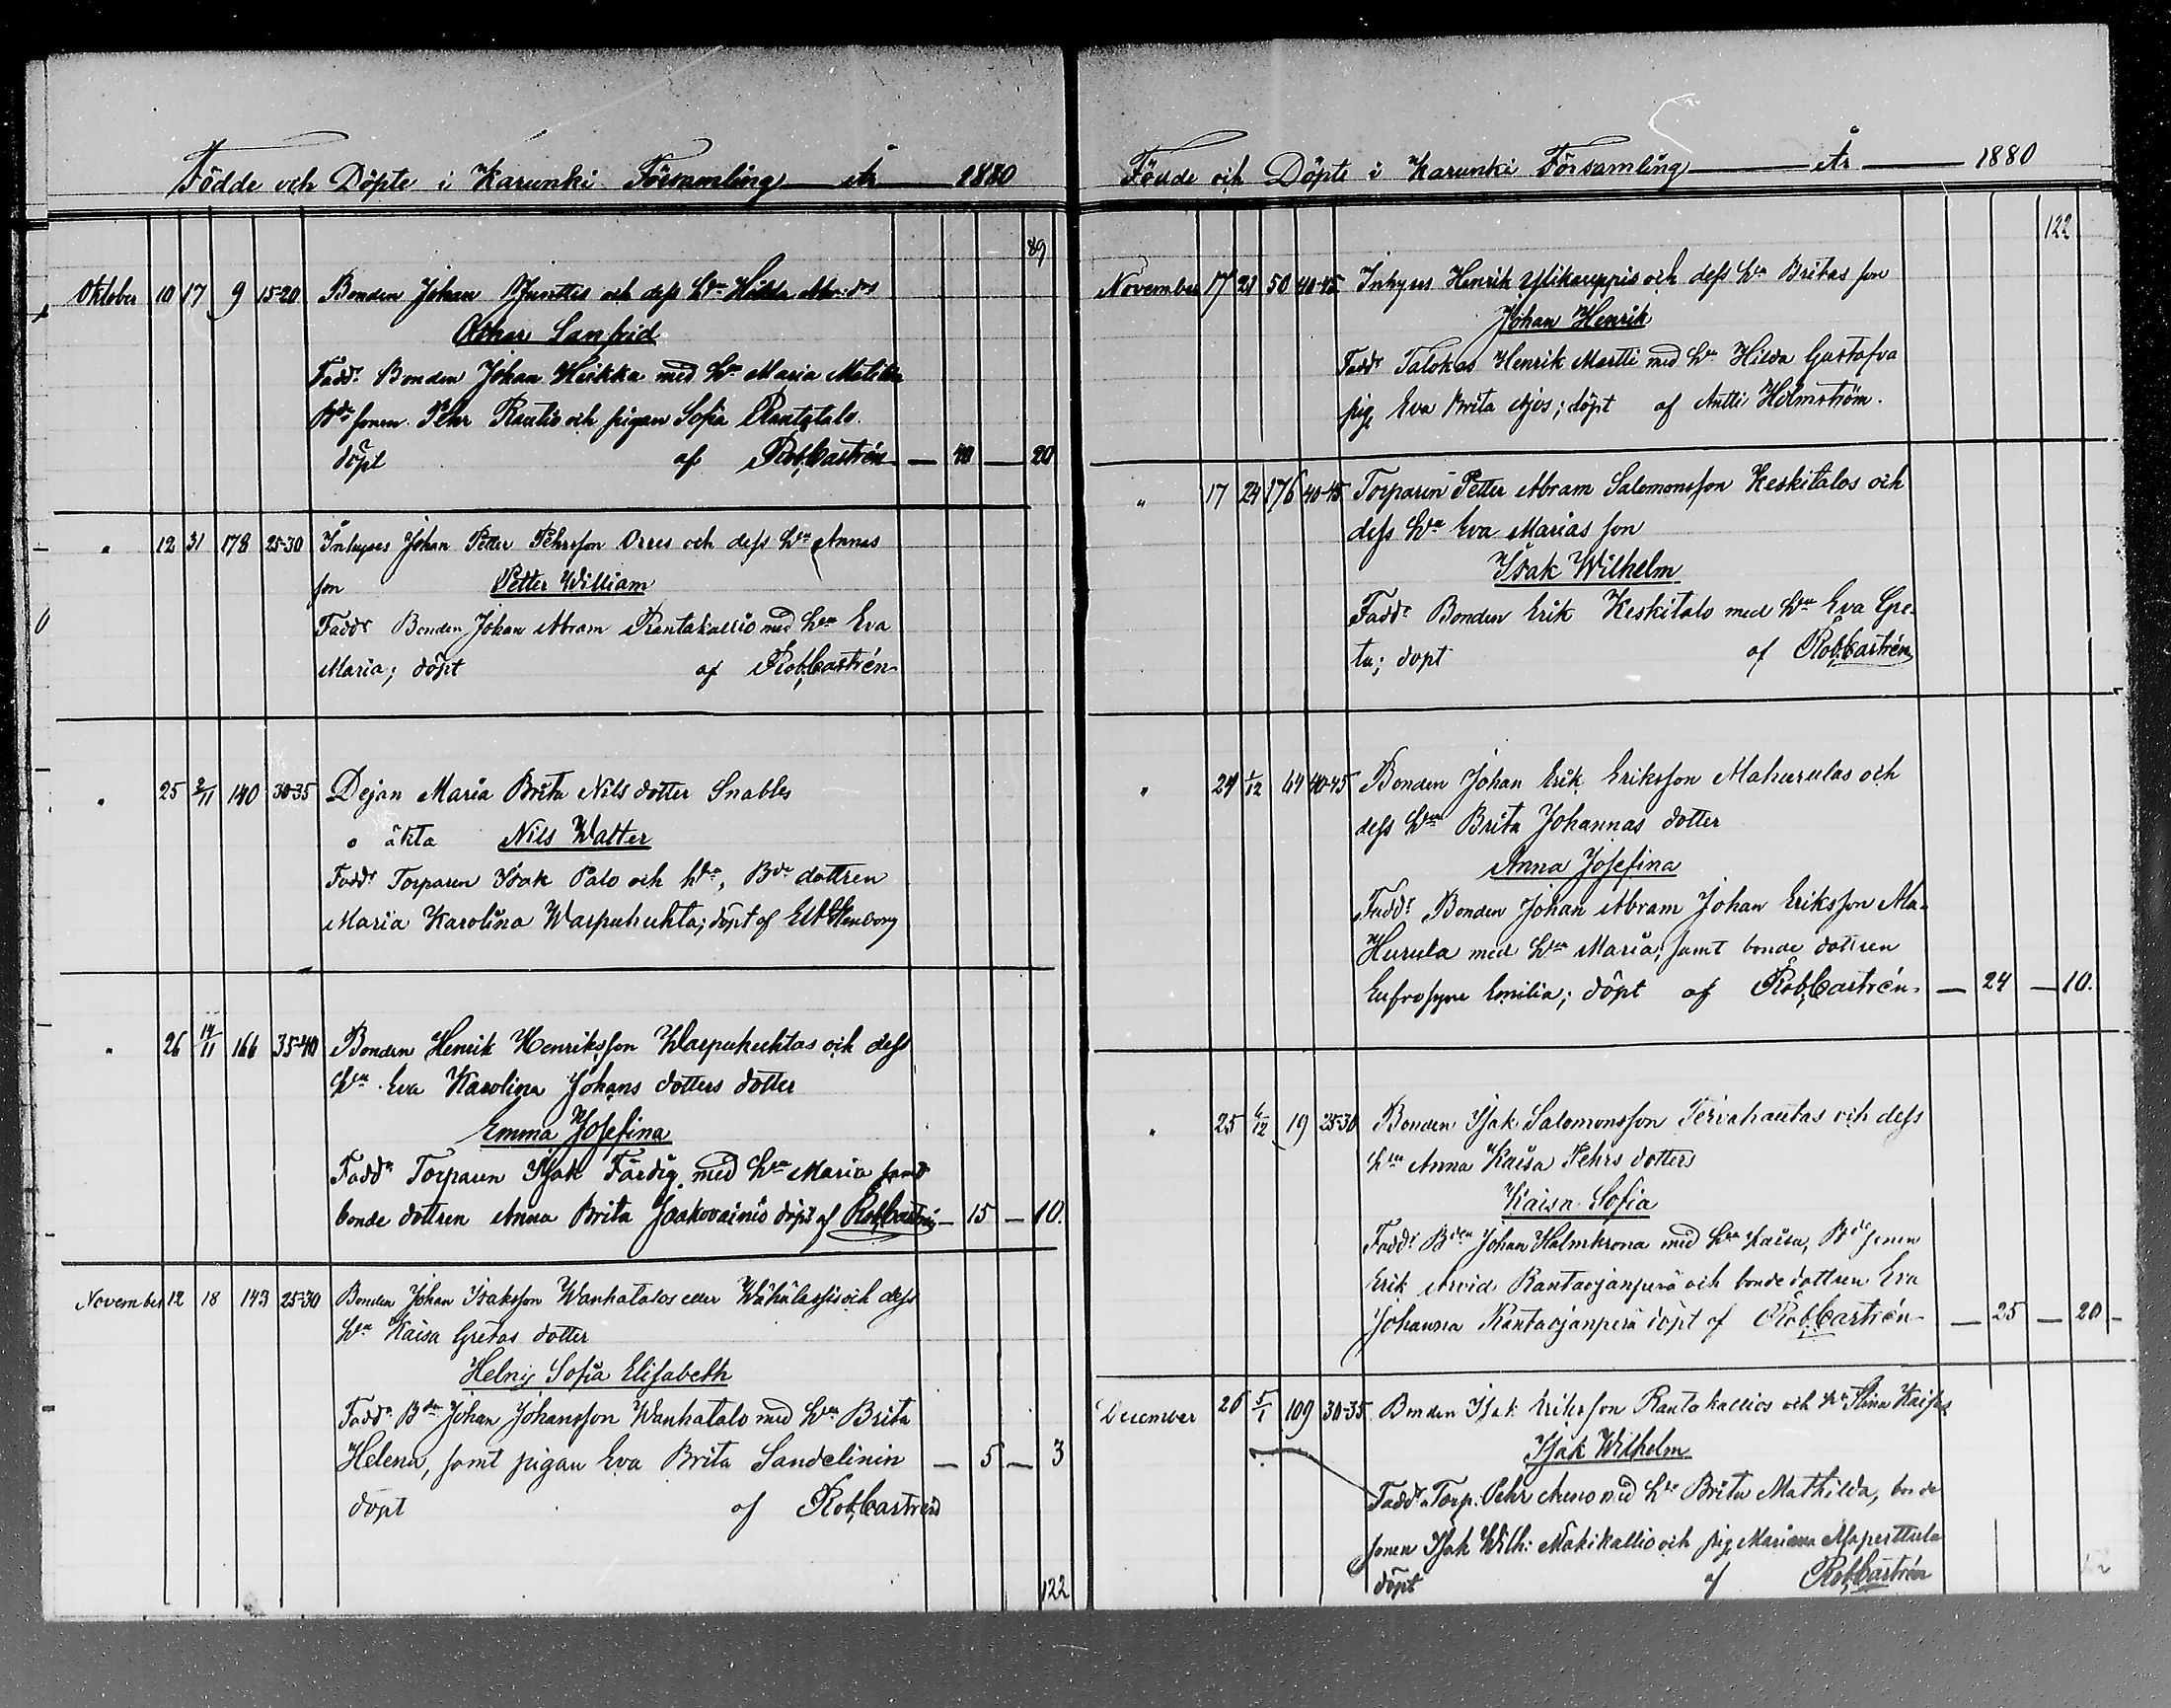 Födde och Döpte i Karunki Församling år 1880
89
Oktober 10 17 9 15-20 Bonden Johan Junttis och dess hu Hilda
Oskar Sanfrid
Fadd: Bonden Johan Heikka med hu Maria Matilda
Bde sonen Pehr Rautio och pigan Sofia Rantatalo
döpt af Rob. Castrén — 40 — 20
" 12 31 178 25-30 Inhyses Johan Petter Pehrsson Orres och dess hu Annas
son Petter William
Fadd: Bonden Johan Abram Rantakallio med hu Eva
Maria; döpt af Rob. Castrén
" 25 2/11 140 30-35 Dejan Maria Brita Nils dotter Snabbs
o äkta Nils Walter
Fadd: Torparen Isak Palo och hu, Bde dottren
Maria Karolina Warpuhuhta; döpt af
" 26 14/11 166 35-40 Bonden Henrik Henriksson Warpuhuhtas och dess
hu Eva Karolina Johans dotters dotter
Emma Josefina
Fadd: Torparen Isak Färdig med hu Maria samt
bonde dottren Anna Brita Jaakovainio döpt af Rob. Castrén — 15 — 10.
November 12 18 143 25-30 Bonden Johan Isaksson Wanhatalos eller och dess
hu Kaisa Gretas dotter
Helny Sofia Elisabeth
Fadd: Bdn Johan Johansson Wanhatalo med hu Brita
Helena, samt pigan Eva Brita Sandelinin — 5 — 3
döpt af Rob. Castrén
122
Födde och Döpte i Karunki Församling år 1880
122
November 17 21 50 40-45 Inhyses Henrik Ylikauppis och dess hu Britas son
Johan Henrik
Fadd: Talokas Henrik Martti med hu Hilda Gustafva
pig. Eva Brita Ajos; döpt af Antti Holmström.
" 17 24 176 40-45 Torparen Petter Abram Salomonsson Keskitalos och
dess hu Eva Marias son
Isak Wilhelm
Fadd: Bonden Erik Keskitalo med hu Eva Gre-
ta; döpt af Rob. Castrén
" 24 1/12 64 40-45 Bonden Johan Erik Eriksson Alahurulas och
dess hu Brita Johannas dotter
Anna Josefina
Fadd: Bonden Johan Abram Johan Eriksson Ala-
Hurula med hu Maria; samt bonde dottren
Eufrosyne Emilia; döpt af Rob. Castrén — 24 — 10.
" 25 6/12 19 25-30 Bonden Isak Salomonsson Tervahautas och dess
hu Anna Kaisa Pehrs dotters
Kaisa Sofia
Fadd: Bden Johan Halmkrona med hu Kaisa, Bde sonen
Erik Arvid Rantaojanperä och bonde dottren Eva
Johanna Rantaojanperä döpt af Rob. Castrén — 25 — 20 —
December 26 5/1 109 30-35 Bonden Isak Eriksson Rantakallios och hu Stina Kaisas
Isak Wilhelm
Fadd: Torp. Pehr med hu Brita Mathilda, bonde
sonen Isak Wilh: Mäkikallio och pig. Mariana Alaperttula
döpt af Rob. Castrén